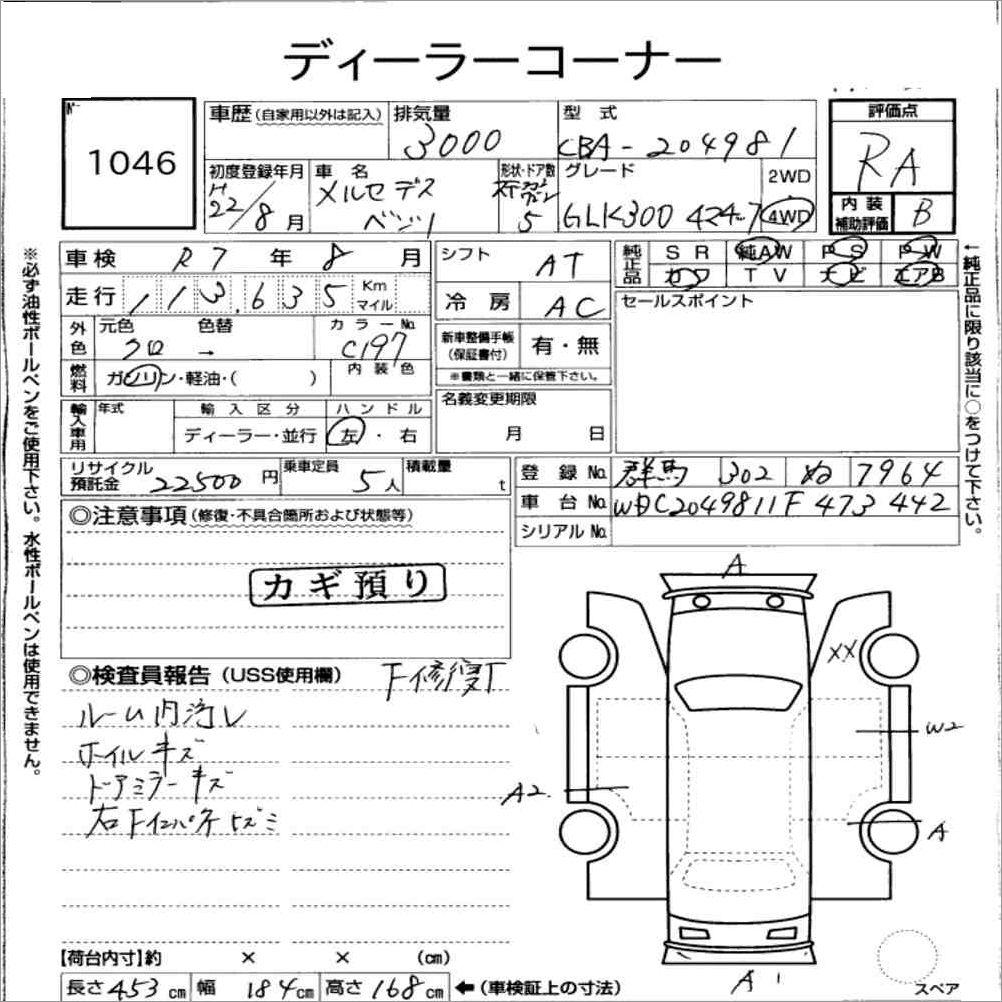 ディーラーコーナー
№
1046
車歴(自家用以外は記入)
排気量
3000
型式
CBA-204981
評価点
RA
内装
補助評価
B
初度登録年月
H22/8月
車名
メルセデス
ベンツ
形状・ドア数
5
グレード
GLK300 4マチック
2WD
4WD
車検 R7年8月
走行 113,635 Km マイル
外色
元色
色替
クロ →
カラーNo.
C197
燃料
ガソリン・軽油・( )
内装色
輸入車用
年式
輸入区分
ディーラー・並行
ハンドル
左・右
シフト AT
冷房 AC
新車整備手帳
(保証書付)
有・無
※書類と一緒に保管下さい。
名義変更期限
月 日
純正品
SR 純AW PS PW
カワ TV ナビ エアB
セールスポイント
リサイクル
預託金
22500円
乗車定員
5人
積載量
t
登録No. 群馬 302 ぬ 7964
車台No. WDC2049811F473442
シリアルNo.
◎注意事項(修復・不具合箇所および状態等)
カギ預り
◎検査員報告(USS使用欄)
F修復
ルーム内汚レ
ホイルキズ
ドアミラーキズ
右Fインパネキズミ
A
XX
W2
A2
A
A1
スペア
【荷台内寸】約 × × (cm)
長さ453cm 幅184cm 高さ168cm ←(車検証上の寸法)
※必ず油性ボールペンをご使用下さい。水性ボールペンは使用できません。
←純正品に限り該当に○をつけて下さい。